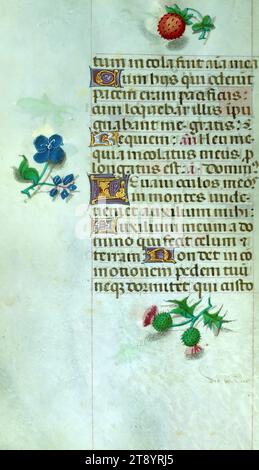 tum incola fuit aīa mea
Cum hijs qui oderūt
pacem eram pacificus:
cum loquebar illis ipu
gnabant me gratis:
Requiem: an̄ Heu me
quia incolatus meus
longatus est:
Leuaui oculos meos
in montes unde
ueniet auxilium mihi:
Auxilium meum a do
mino qui fecit celum et
terram: Non det in co
motionem pedem tuū
neqꝫ dormitet qui custo
alamy
Image ID: 2T8YRJ5
www.alamy.com